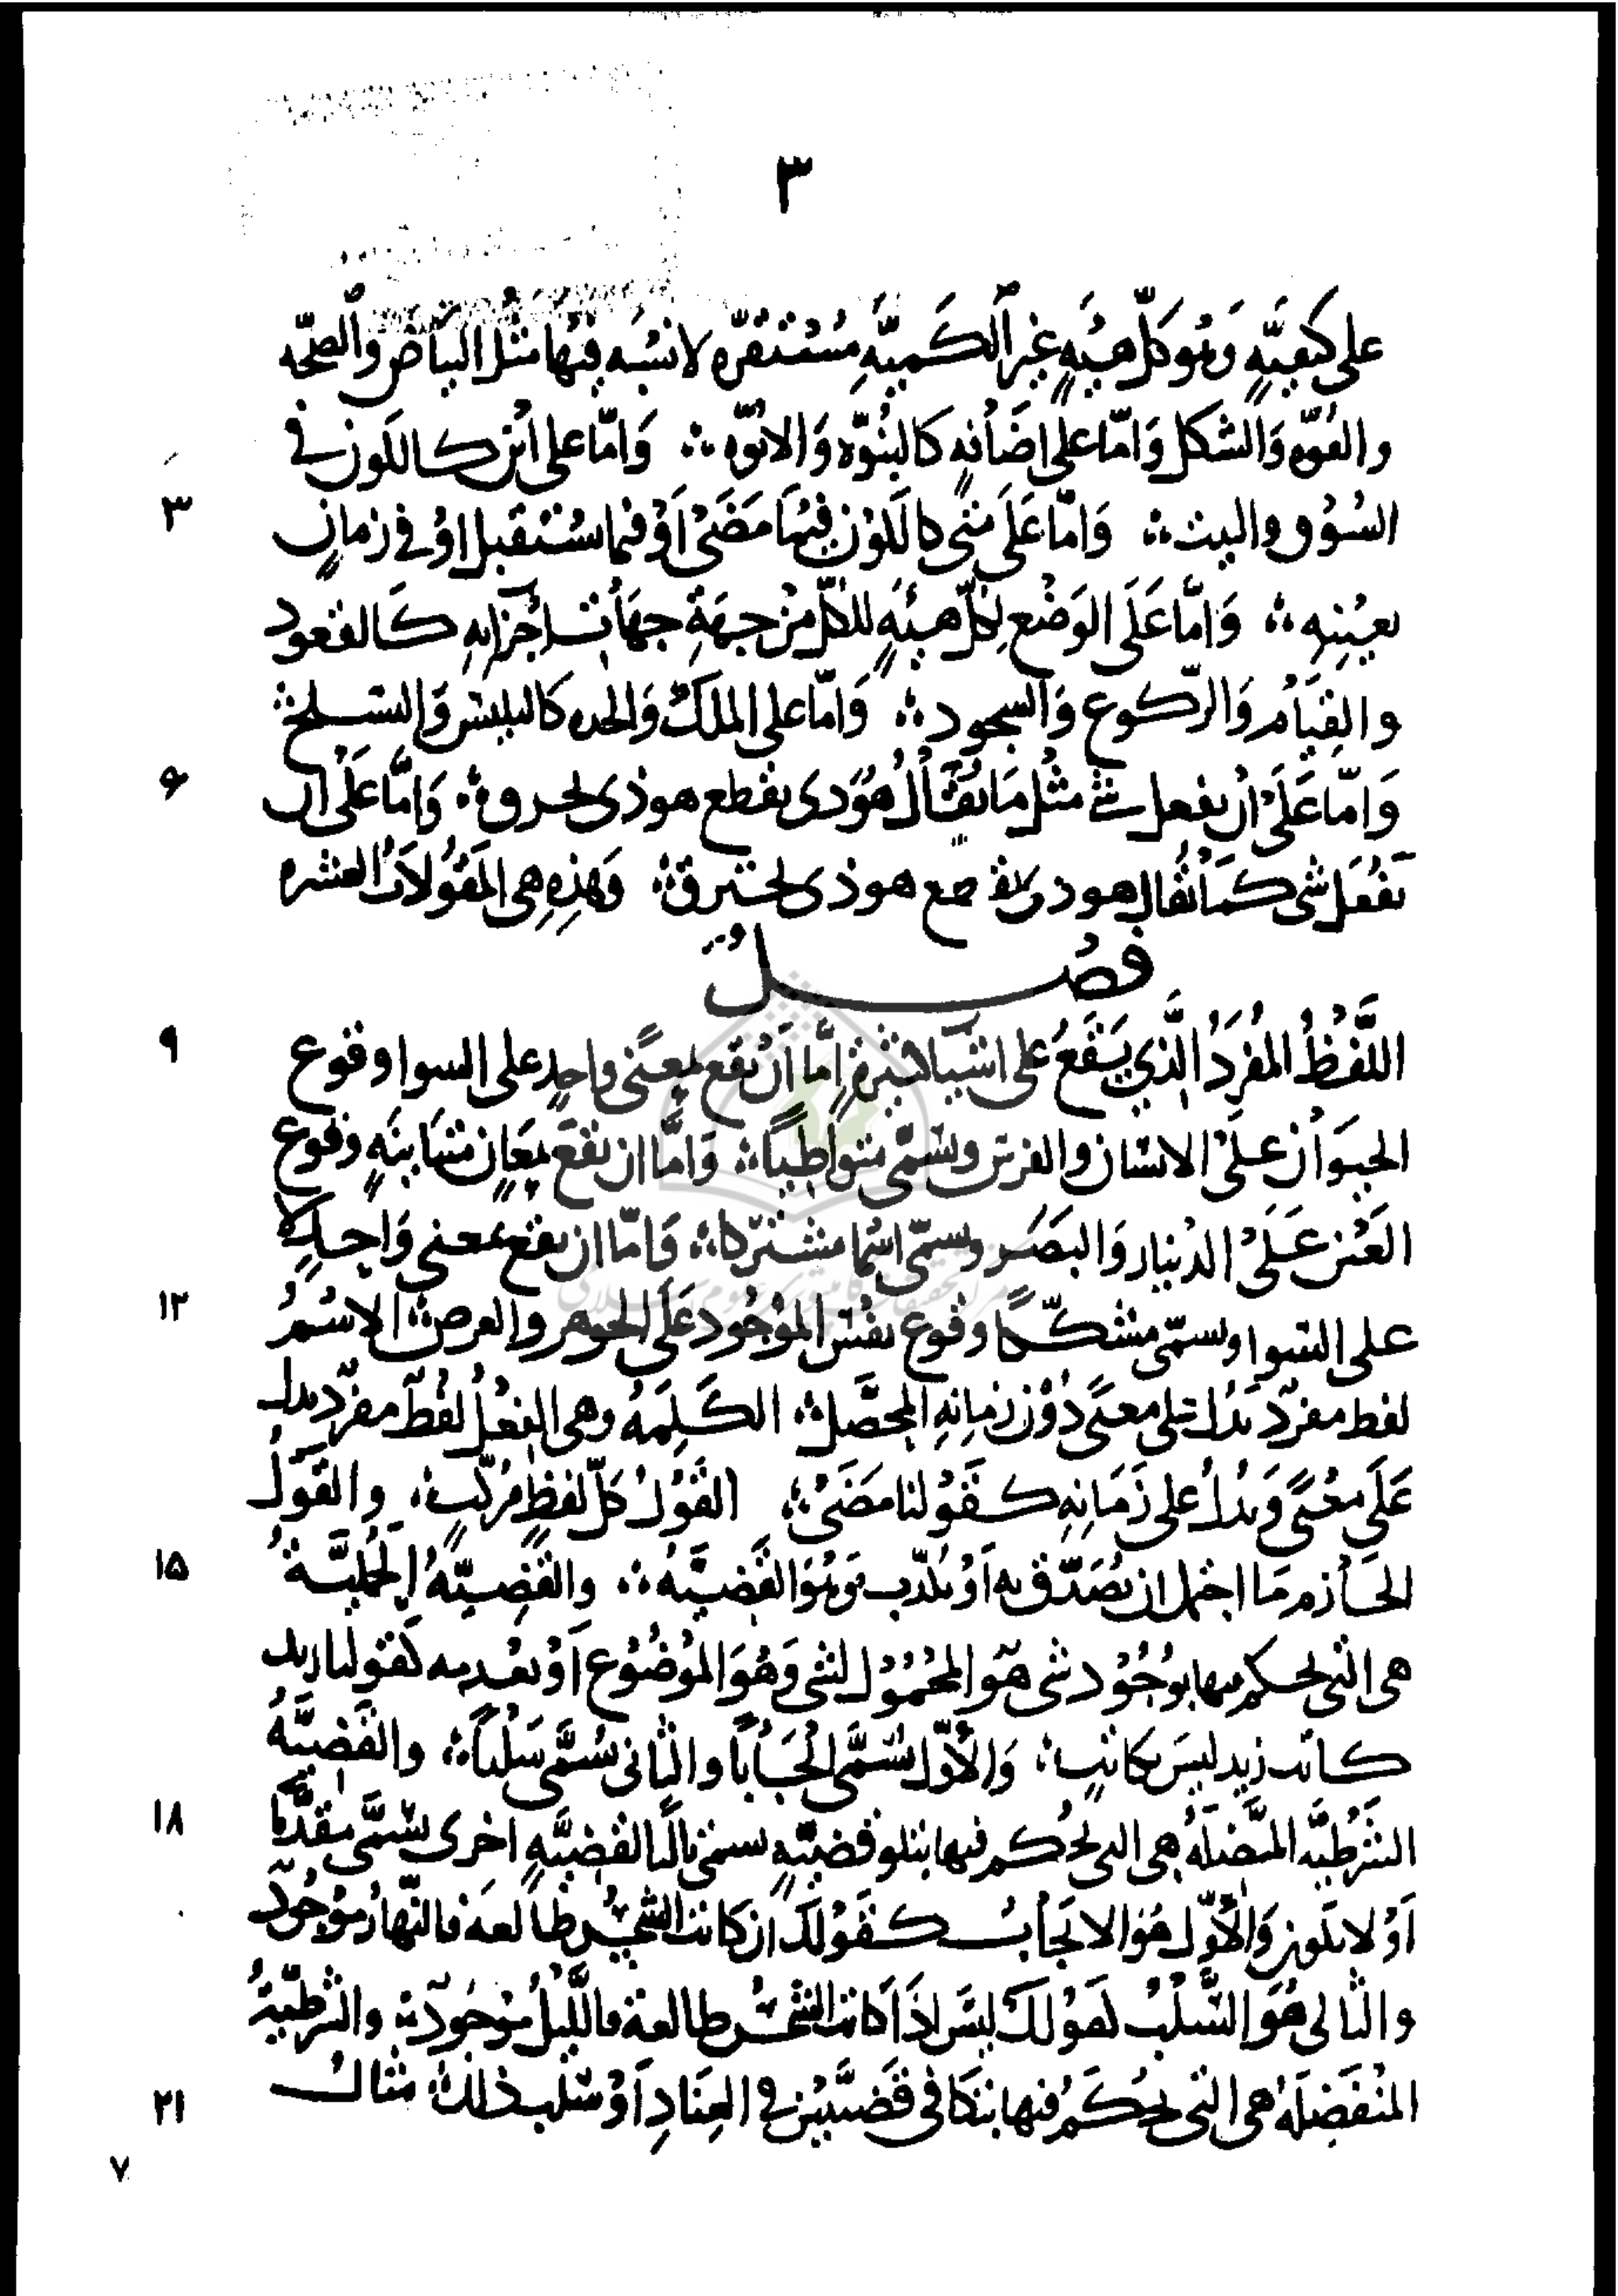 ٣
على كيفيّةٍ وَهُو كلّ هيئةٍ غير الكَميّةِ مُستقرّه لا نسْبَه فيْهَا مثْل البيَاض والصحّه
والقوّه وَالشكل وَامّا على اضَافهٍ كالبنُوّه وَالابُوّه ؞ وَامّا على اين كالكون في
٣ السُوْق والبيت ؞ وَامّا عَلَى متى كالكَوْن فيْمَا مَضَىْ اَوْ فيما يسْتقبل اوْ في زمانٍ
بعيْنِهِ ؞ وَامّا عَلَى الوَضْع لكلّ هيئهٍ للكلّ منْ جهَةِ جهَاتِ اجْزائهِ كَالقعود
والقيَام وَالرّكوع وَالسجود ؞ وَامّا على الملكْ وَالجده كالتلبّس وَالتسلّح ؞
۶ وَامّا عَلَىْ انْ يفعل شئ مثْل مَا يُقَالُ هُوَذى يقطع هوذى يحرق ؞ وَامّا عَلَىْ ان
يَنفعَل شى كمَا يُقال هوذى ينقطع هوذى يحترق ؞ وَهٰذِهِ هى المَقُولَاتُ العشره
فصْلٌ
٩ اللَّفْظُ المُفرَدُ الَّذي يَقَعُ على اشيَا كثيرةٍ اِمَّا اَنْ يقع بمعنًى واحِدٍ على السوا وقوع
الحيوَان علىْ الانسَان والفرس ويسَمّى متواطيًا ؞ وَامَّا ان يقعَ بمعَانٍ متبَاينَهٍ وقوع
العَيْن عَلَىْ الدينار وَالبصَر ويسمّى اسْمًا مشتركا ؞ وَامّا ان يقع بمعنى وَاحِدٍ لا
١٢ على السوا ويسمّى مشكّكًا وقوع الموْجُود عَلَى الجوهر والعرض ؞ الاسْمُ
لفظ مفردٌ يَدُل على معنًى دُوْن زمَانِهِ المحصَّل ؞ الكَلِمَهُ وهى الفِعْلُ لفظٌ مفردٌ يدل
عَلَى معْنًى وَيَدُلُ على زَمَانِهِ كقَوْلنا مَضَىْ ؞ القَوْلُ كلّ لفظٍ مُركّبٍ ؞ والقَوْلُ
١۵ الجَازم مَا احتمل ان يُصَدّق به اَوْ يكذّب وَهُوَ القَضيَّه ؞ والقَضِيّهُ الحَمْليَّةُ
هى التى يحكم فيها بوُجُوْد شى هُوَ المحْمُوْل لشى وَهُوَ المَوْضُوْع اَوْ بعَدمه كقولنا زيد
كاتب زيد ليسَ بكاتبٍ ؞ وَالاَوّل يُسَمَّى ايْجَابًا والثانى يُسَمَّى سَلْبًا ؞ والقَضِيَّهُ
١٨ الشَرْطيَّه المتَّصلَهُ هى التى يُحكم فيها بتلو قضيّهٍ تسمّى تاليًا لقضِيَّهٍ اخرى تسَمَّى مقدّمًا
اَوْ لا يكون وَالاوّل هُوَ الايجَاب كقَوْلكَ ان كانت الشمْس طالعَة فالنّهارُ موْجُودٌ
والثانى هُوَ السَّلْبُ كقوْلكَ ليسَ اذَا كانت الشمْس طالعة فالليْلُ موْجُودٌ ؞ والشرطيّةُ
٢١ المنْفَصِلَهُ هى التى يُحْكَمُ فيها بتكافى قَضيّتين فى العِنَادِ اَوْ سَلب ذلك ؞ مثال
٧